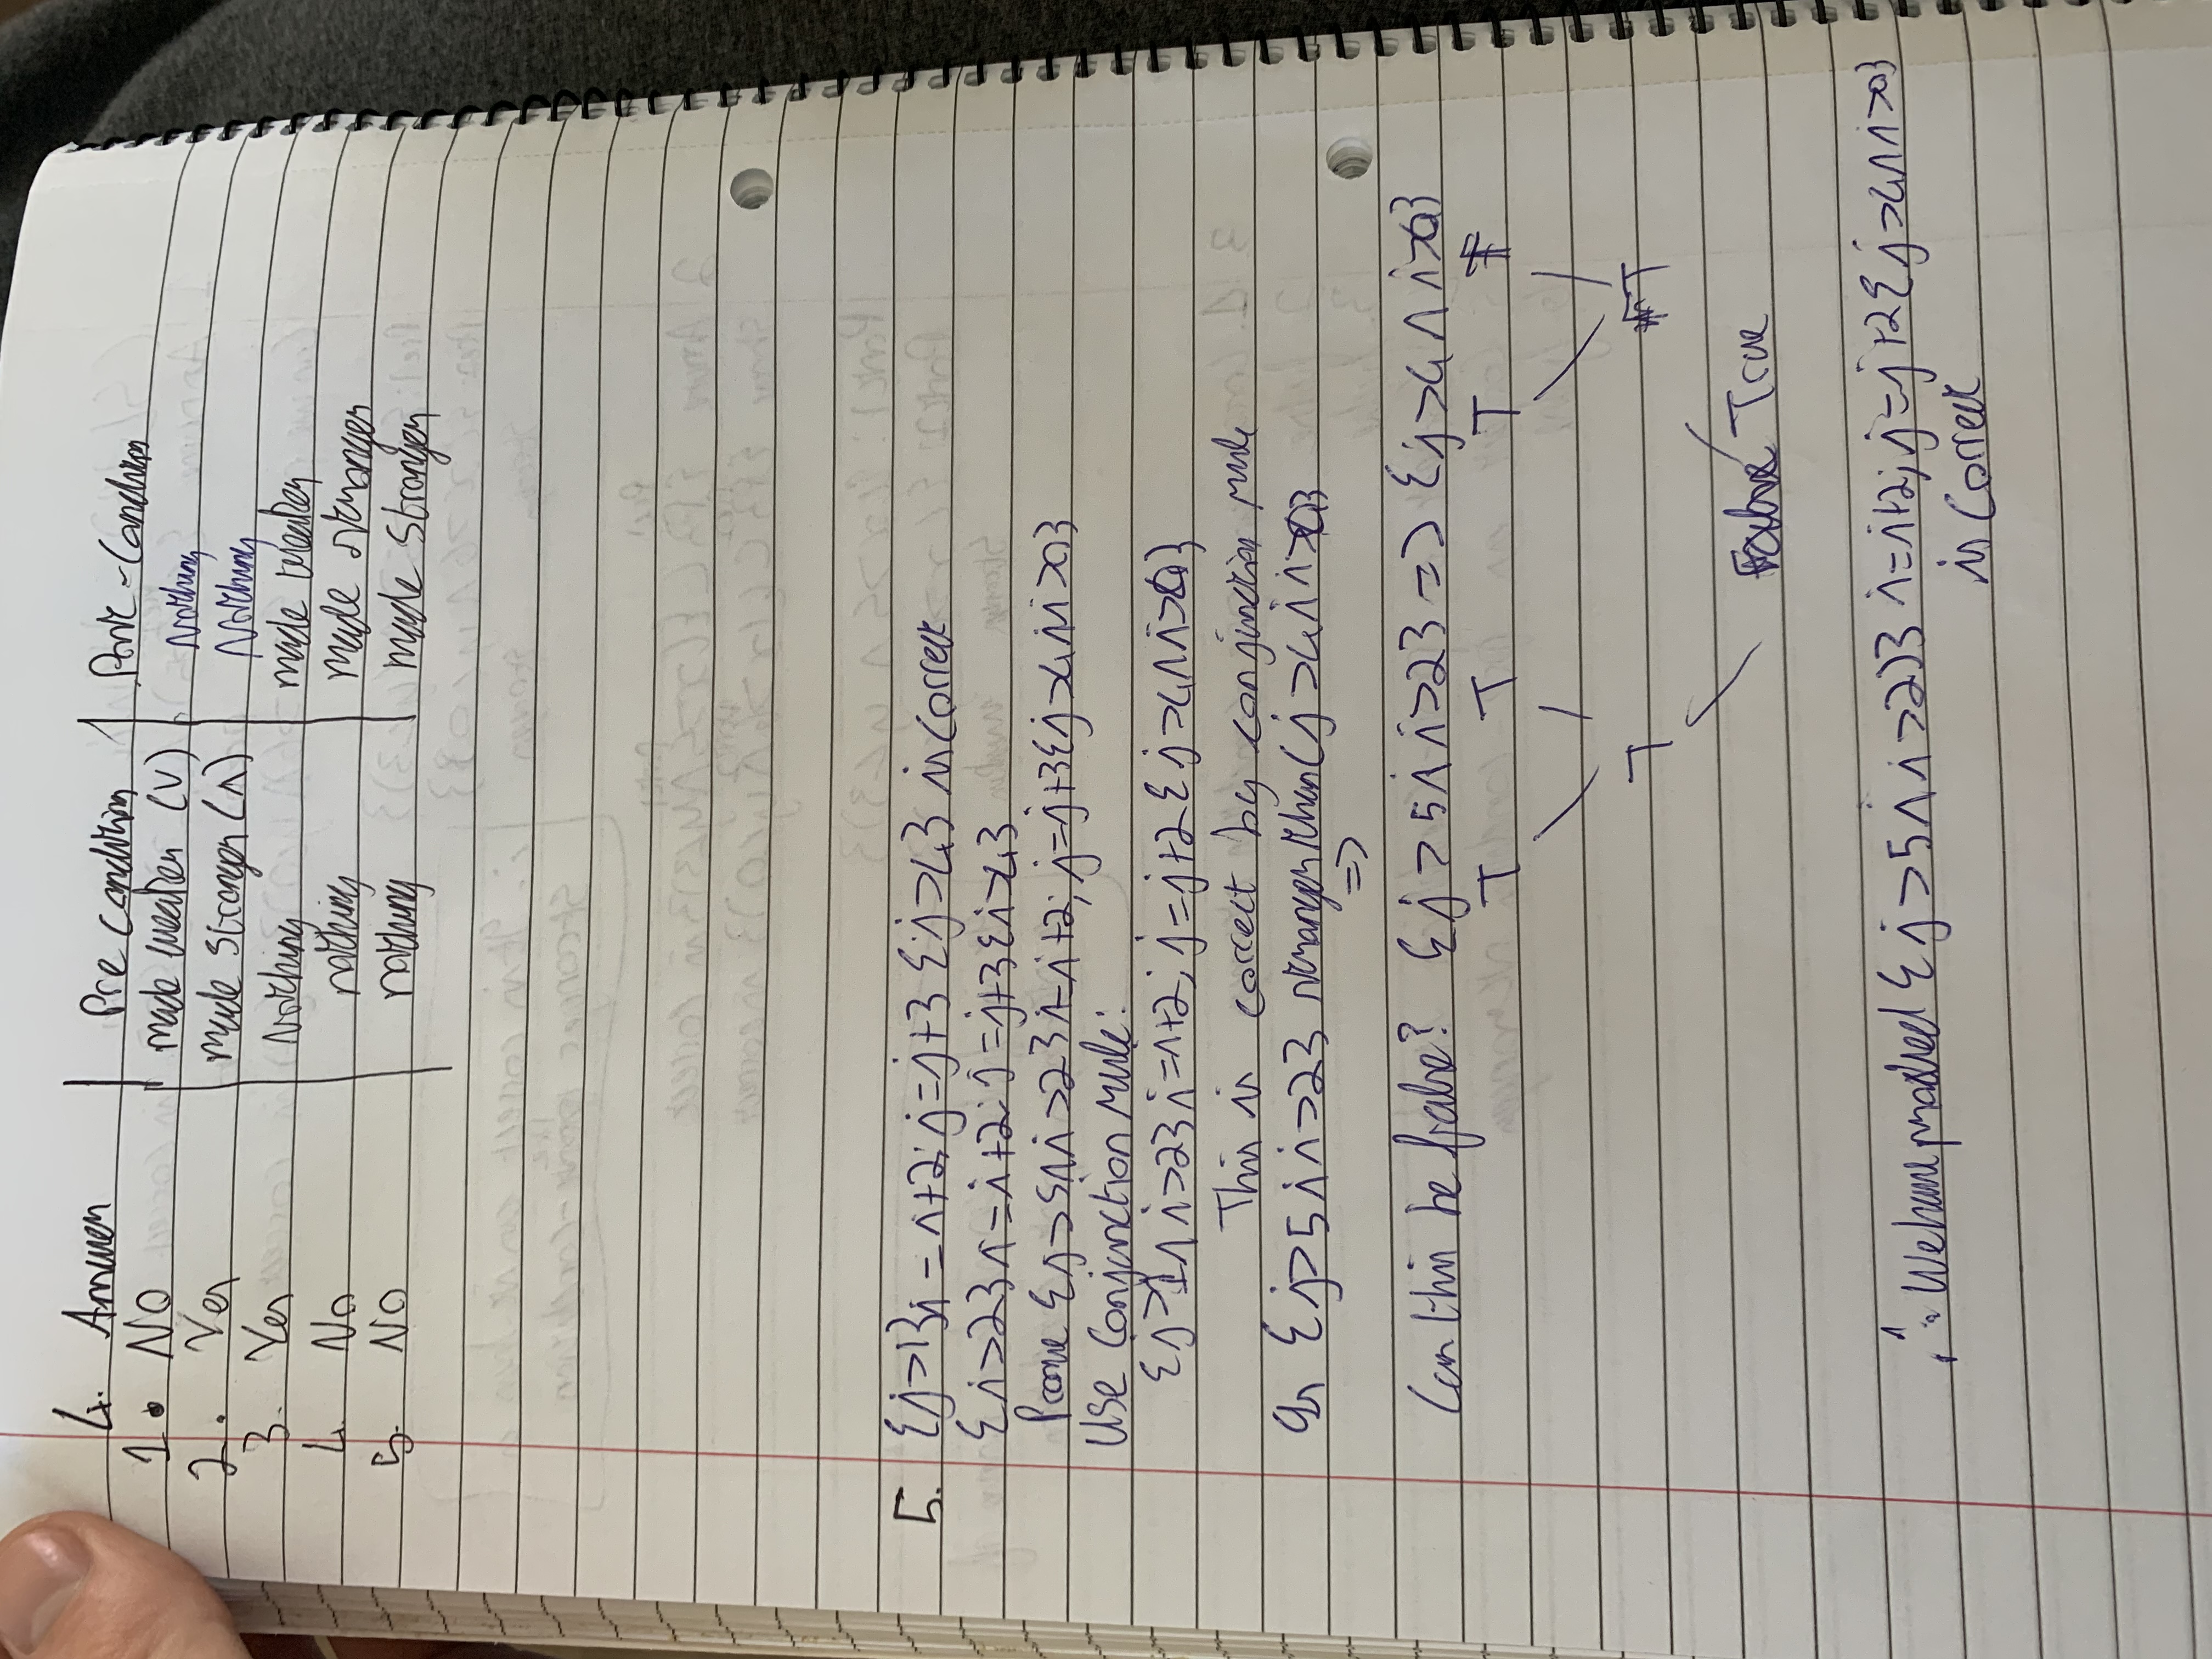 4. Answer | Pre Condition | Post-Condition
1. No | made weaker (V) | Nothing
2. Yes | made stronger (∧) | Nothing
3. Yes | Nothing | made weaker
4. No | nothing | made stronger
5. No | nothing | made stronger
5. {j>1}i=i+2; j=j+3 {j>4} is correct
{i>2}i=i+2; j=j+3{i>4}
Prove {j>5∧i>2}i=i+2; j=j+3{j>4∧i>0}
Use Conjunction rule:
{j>1∧i>2}i=i+2; j=j+2{j>4∧i>0}
This is correct by conjunction rule
Is {j>5∧i>2} stronger than {j>4∧i>0}
=>
Can this be false? {j>5∧i>2} => {j>4∧i>0}
T T T
T T
True
∴ We have proved {j>5∧i>2)} i=i+2; j=j+2{j>4∧i>0}
is Correct